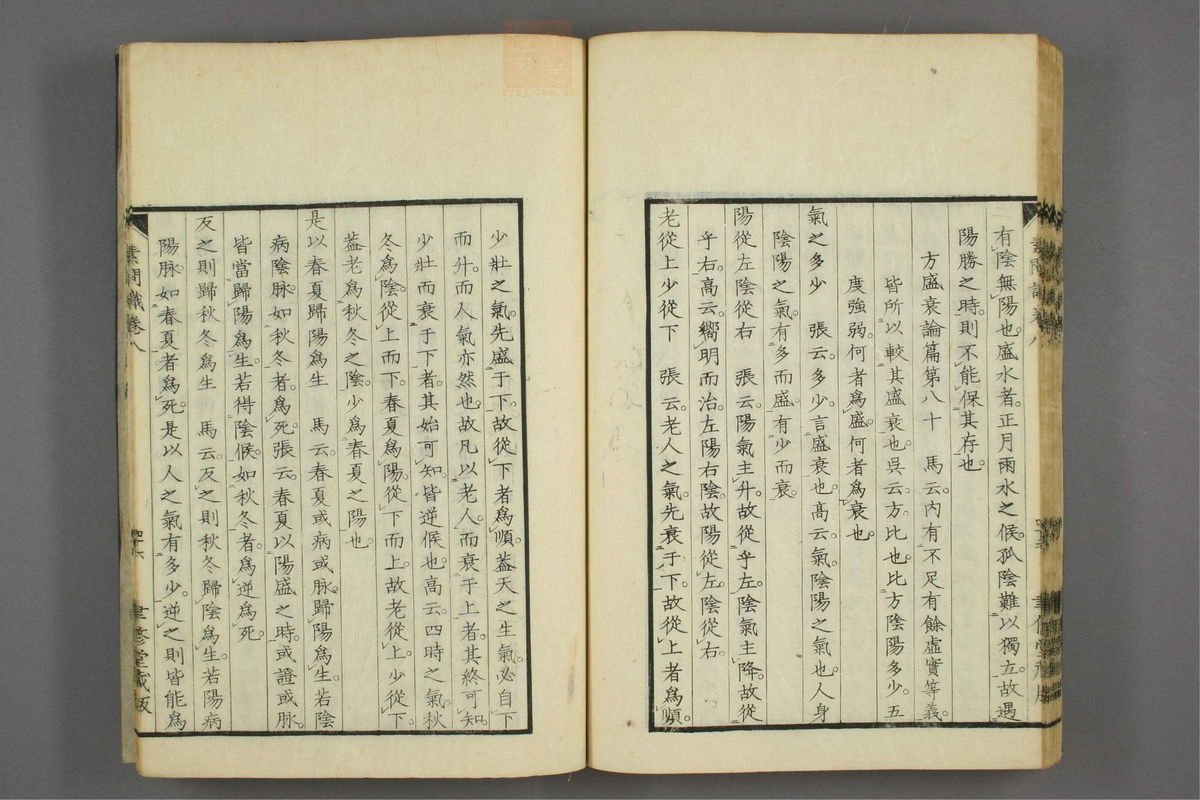 有陰無陽也。盛水者。正月雨水之候。孤陰難以獨立。故遇
陽勝之時。則不能保其存也。
方盛衰論篇第八十 馬云。內有不足有餘虛實等義。
皆所以較其盛衰也。吳云。方。比也。比方陰陽多少。五
度強弱。何者爲盛。何者爲衰也。
氣之多少 張云。多少。言盛衰也。高云。氣。陰陽之氣也。人身
陰陽之氣。有多而盛。有少而衰。
陽從左陰從右 張云。陽氣主升。故從乎左。陰氣主降。故從
乎右。高云。嚮明而治。左陽右陰。故陽從左。陰從右
老從上少從下 張云。老人之氣。先衰于下。故從上者爲順。
少壯之氣。先盛于下。故從下者爲順。蓋天之生氣。必自下
而升。而人氣亦然也。故凡以老人。而衰于上者。其終可知。
少壯而衰于下者。其始可知。皆逆候也。高云。四時之氣。秋
冬爲陰。從上而下。春夏爲陽。從下而上。故老從上。少從下。
蓋老爲秋冬之陰。少爲春夏之陽也。
是以春夏歸陽爲生 馬云。春夏或病或脉。歸陽爲生。若陰
病陰脉。如秋冬者。爲死。張云。春夏以陽盛之時。或證或脉。
皆當歸陽爲生。若得陰候。如秋冬者。爲逆爲死。
反之則歸秋冬爲生 馬云。反之則秋冬歸陰爲生。若陽病
陽脉。如春夏者爲死。是以人之氣有多少。逆之則皆能爲
素問識卷八
四十六
聿修堂藏版